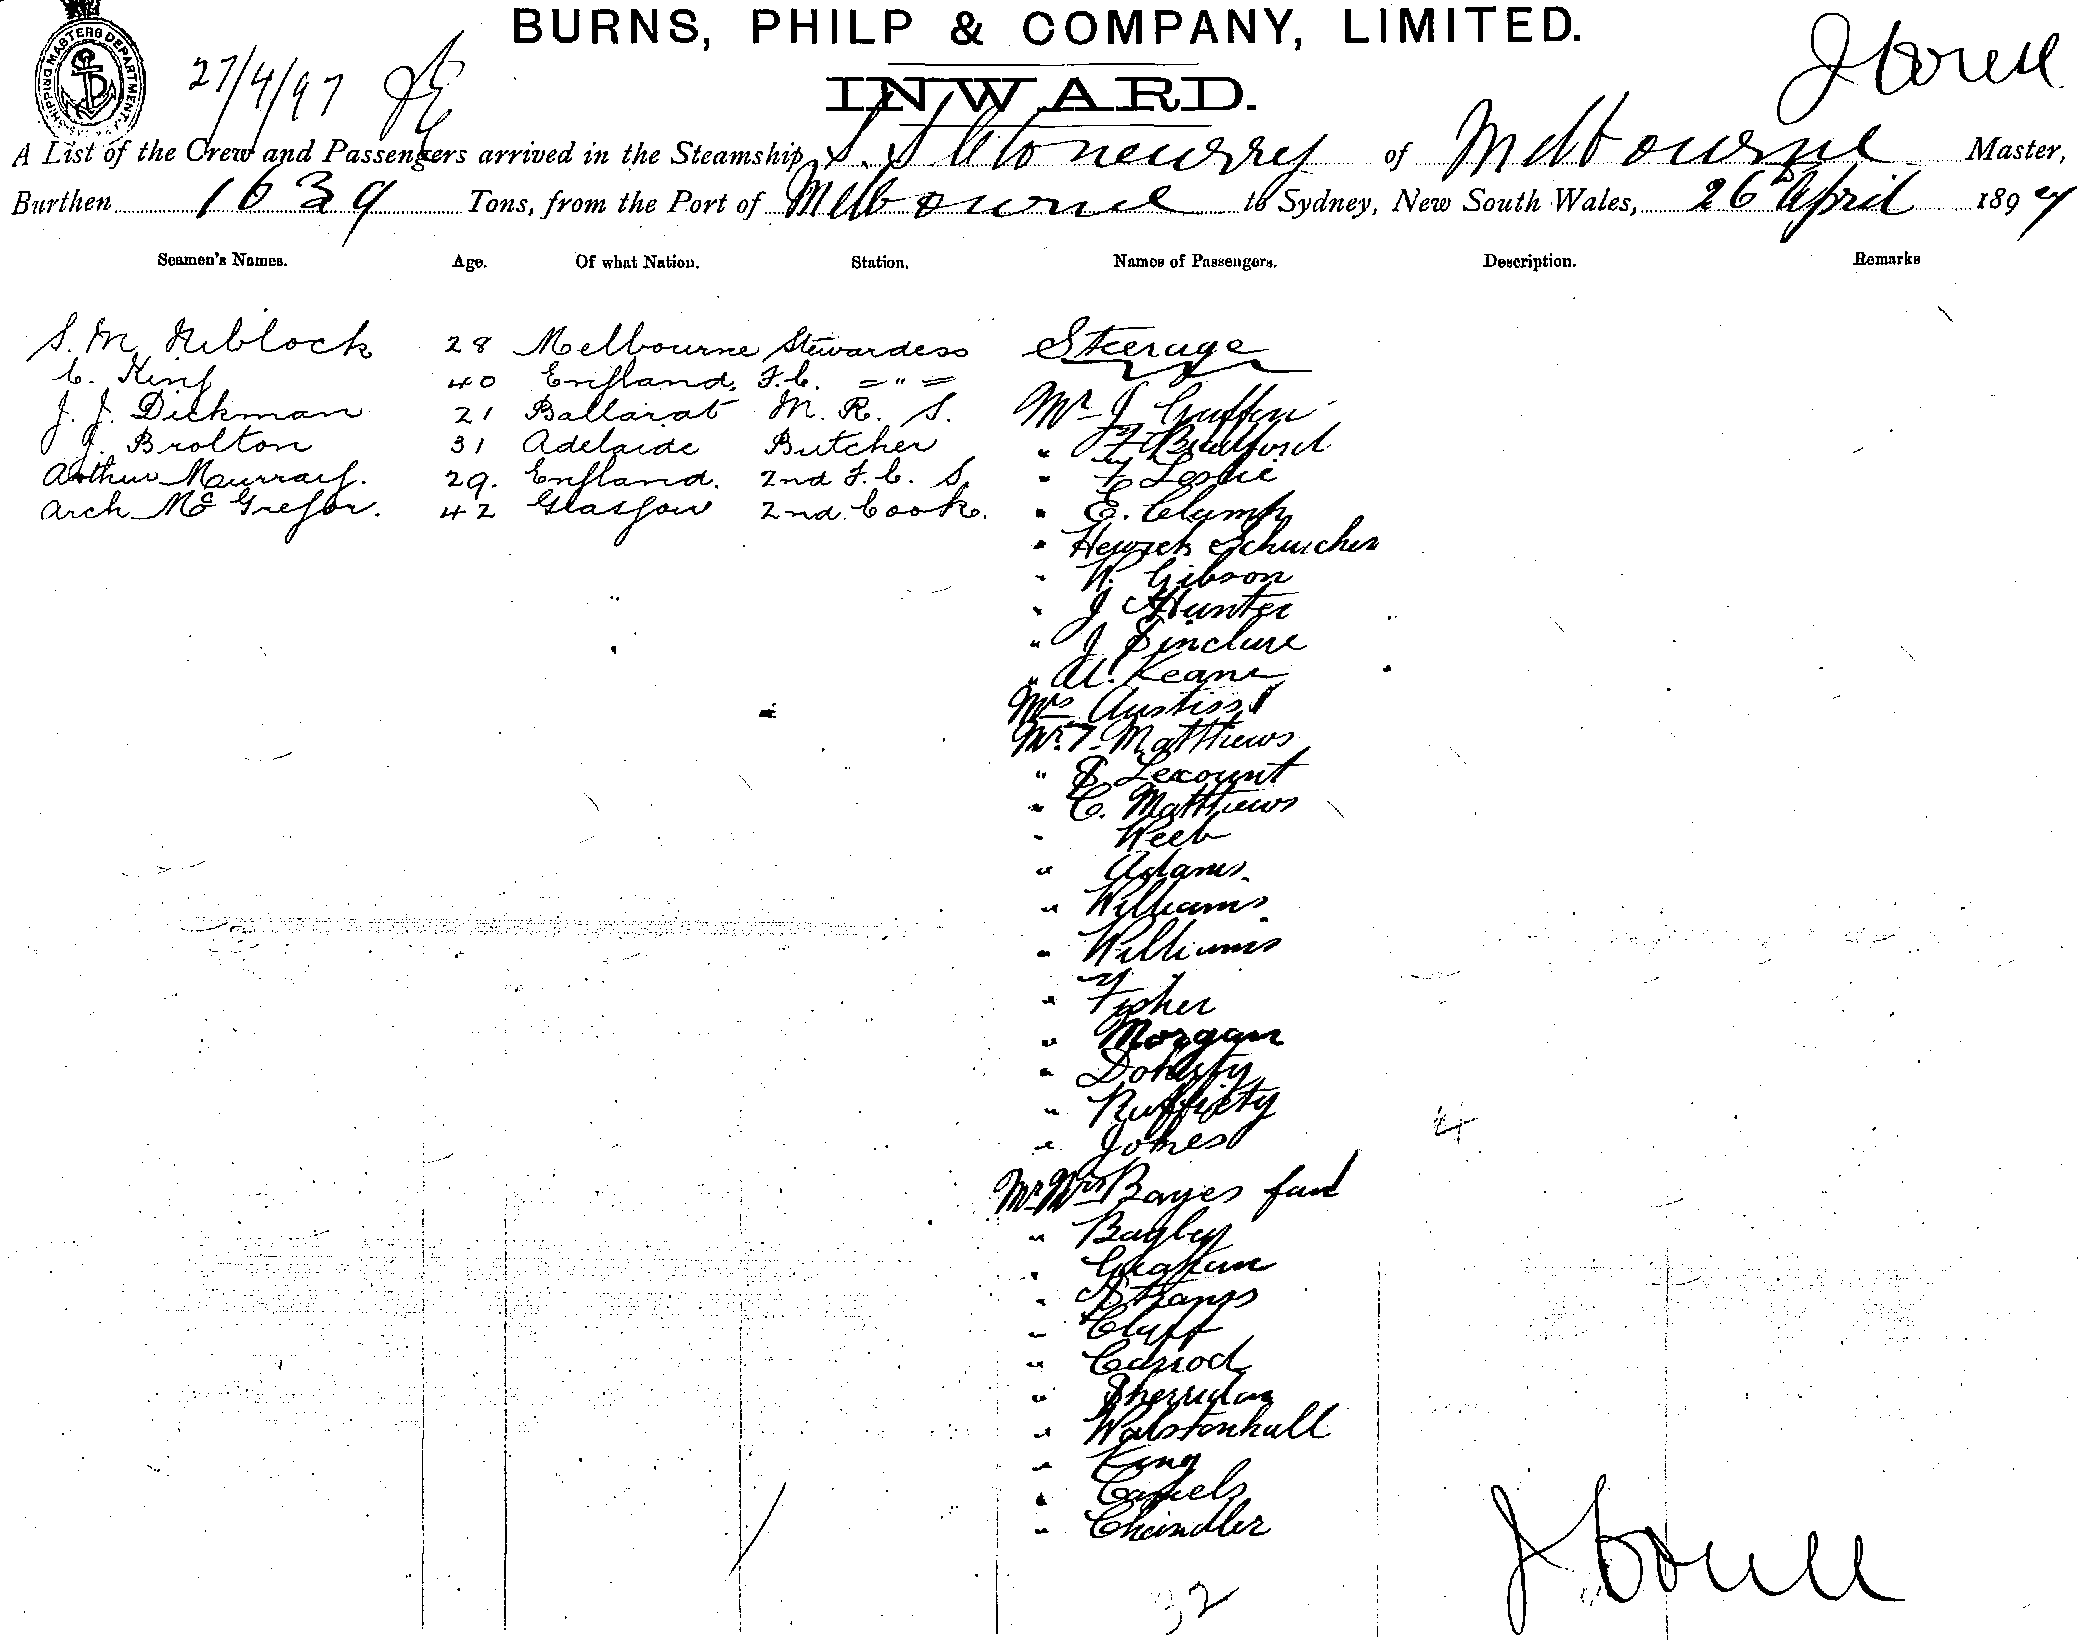 BURNS, PHILP & COMPANY, LIMITED.
SHIPPING MASTERS DEPARTMENT
27/4/97
INWARD.
A List of the Crew and Passengers arrived in the Steamship S. S. Cloncurry of Melbourne Master,
Burthen 1639 Tons, from the Port of Melbourne to Sydney, New South Wales, 26th April 1897
Seamen's Names. Age. Of what Nation. Station. Names of Passengers. Description. Remarks
S. M. Niblock 28 Melbourne Stewardess Steerage
C. King 40 England. F.C. = " =
J. J. Dickman 21 Ballarat M. R. S. Mr J Griffin
J. Brolton 31 Adelaide Butcher " F Bradford
Arthur Murray. 29. England. 2nd F. C. S. " F Leslie
Arch McGregor. 42 Glasgow 2nd Cook. " E. Clump
" W. Gibson
" J Hunter
" J Sinclare
" Keane
Mrs Austiss
Mr T Matthews
" Lecount
" C. Matthews
" Weeb
" Adams.
" Williams
" Williams
" Fisher
" Morgan
" Doherty
" Raffirty
" Jones
Mr Mrs Bayes fam
" Bagley
" Graham
" Strapps
" Cluff
" Carrod
" Sherridan
" Walstonhall
" King
" Chandler
32